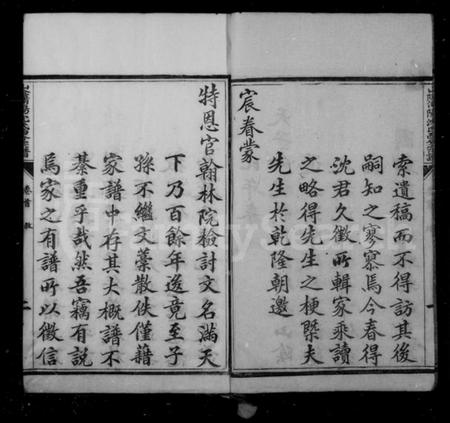 索遺稿而不得訪其後
嗣知之寥寥焉今春得
沈君久徵所輯家乘讀
之略得先生之梗槩夫
先生於乾隆朝邀
宸眷蒙
特恩官翰林院檢討文名滿天
下乃百餘年後竟至子
孫不繼文藁散佚僅藉
家譜中存其大概譜不
綦重乎哉然吾竊有說
焉家之有譜所以徵信
卷首
二